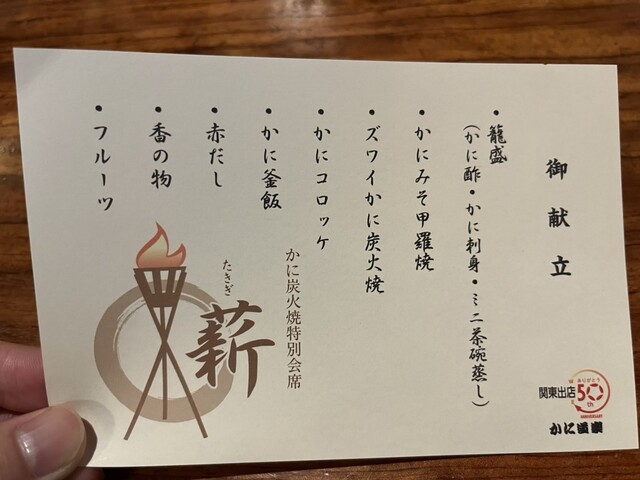 御献立
・籠盛
(かに酢・かに刺身・ミニ茶碗蒸し)
・かにみそ甲羅焼
・ズワイかに炭火焼
・かにコロッケ
・かに釜飯
・赤だし
・香の物
・フルーツ
かに炭火焼特別会席
たきぎ
薪
関東出店
ありがとう
50th
ANNIVERSARY
かに道楽